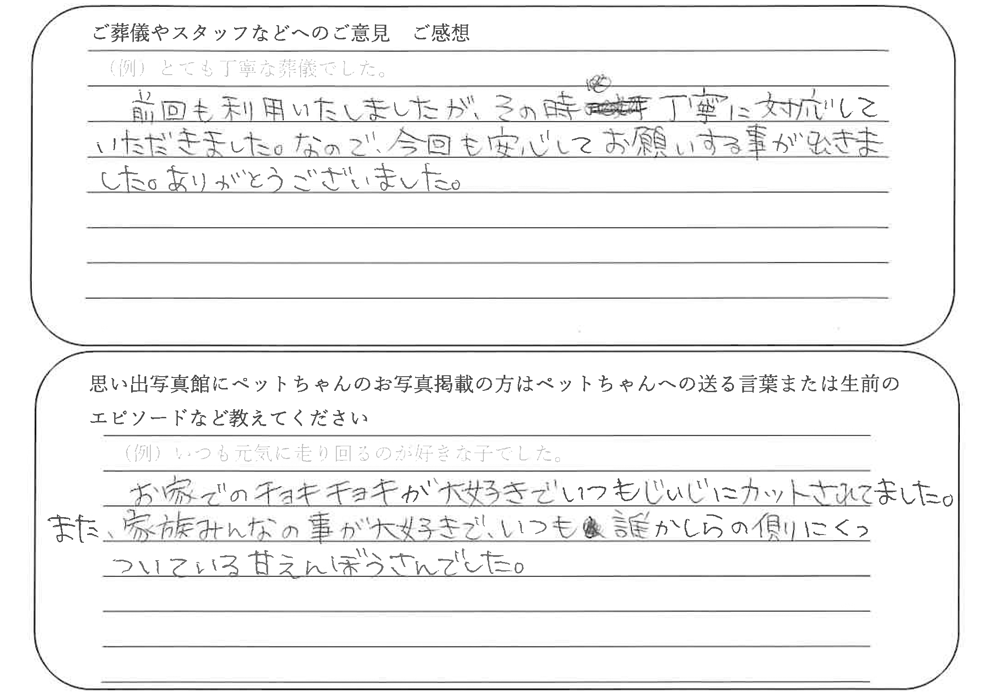 ご葬儀やスタッフなどへのご意見　ご感想
（例）とても丁寧な葬儀でした。
前回も利用いたしましたが、その時丁寧に対応して
いただきました。なので、今回も安心してお願いする事が出きま
した。ありがとうございました。
思い出写真館にペットちゃんのお写真掲載の方はペットちゃんへの送る言葉または生前の
エピソードなど教えてください
（例）いつも元気に走り回るのが好きな子でした。
お家でのチョキチョキが大好きでいつもじいじにカットされてました。
また、家族みんなの事が大好きで、いつも誰かしらの側にくっ
ついている甘えんぼうさんでした。